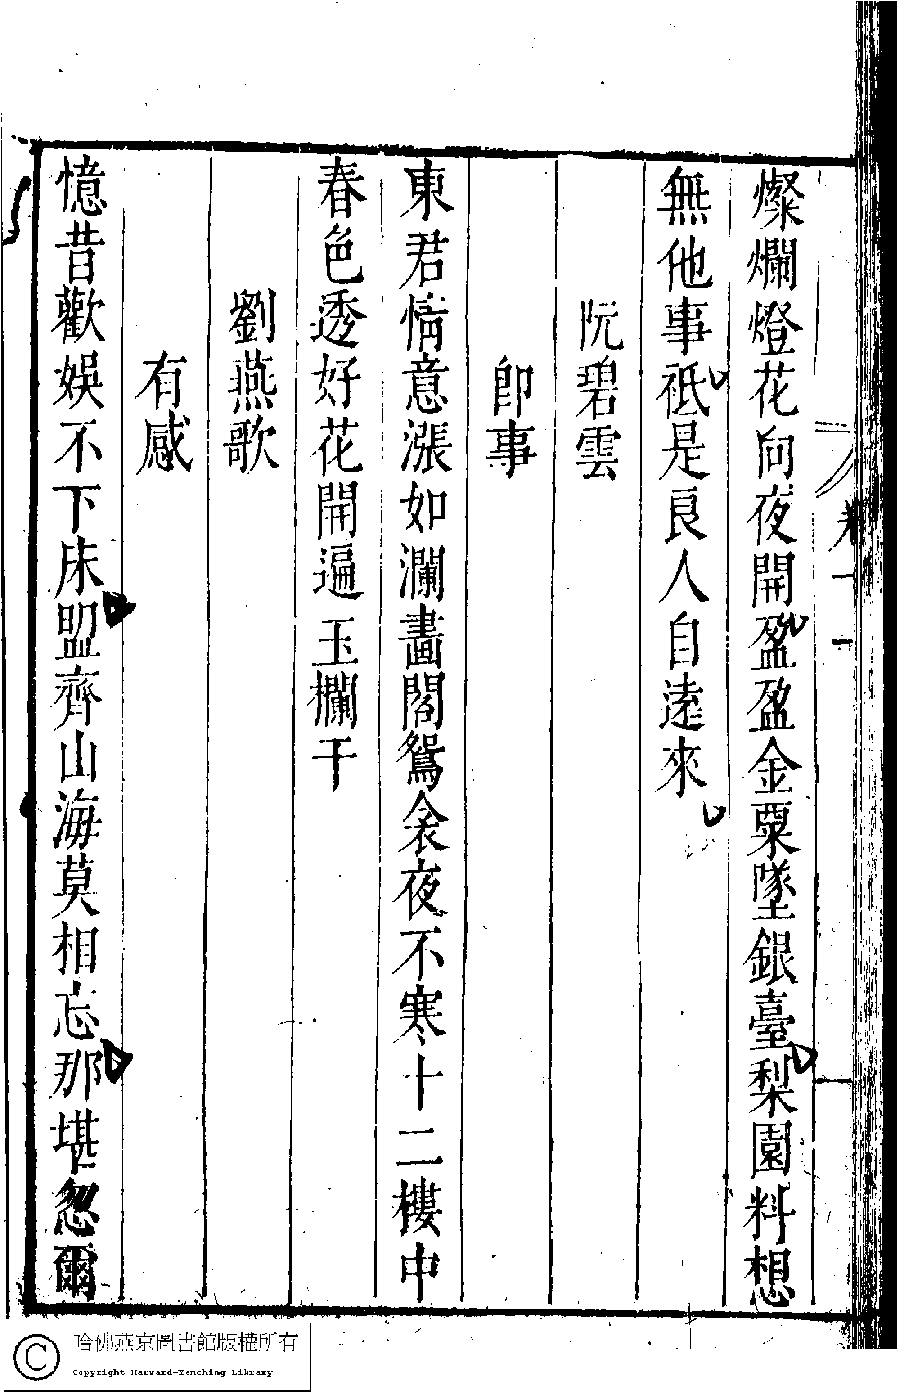 燦爛燈花向夜開盈盈金粟墜銀臺梨園料想
無他事祗是良人自遠來
阮碧雲
即事
東君情意漲如瀾畵閣鴛衾夜不寒十二樓中
春色透好花開遍玉欄干
劉燕歌
有感
憶昔歡娛不下床盟齊山海莫相忘那堪忽爾
哈佛燕京圖書館版權所有
Copyright Harvard-Yenching Library